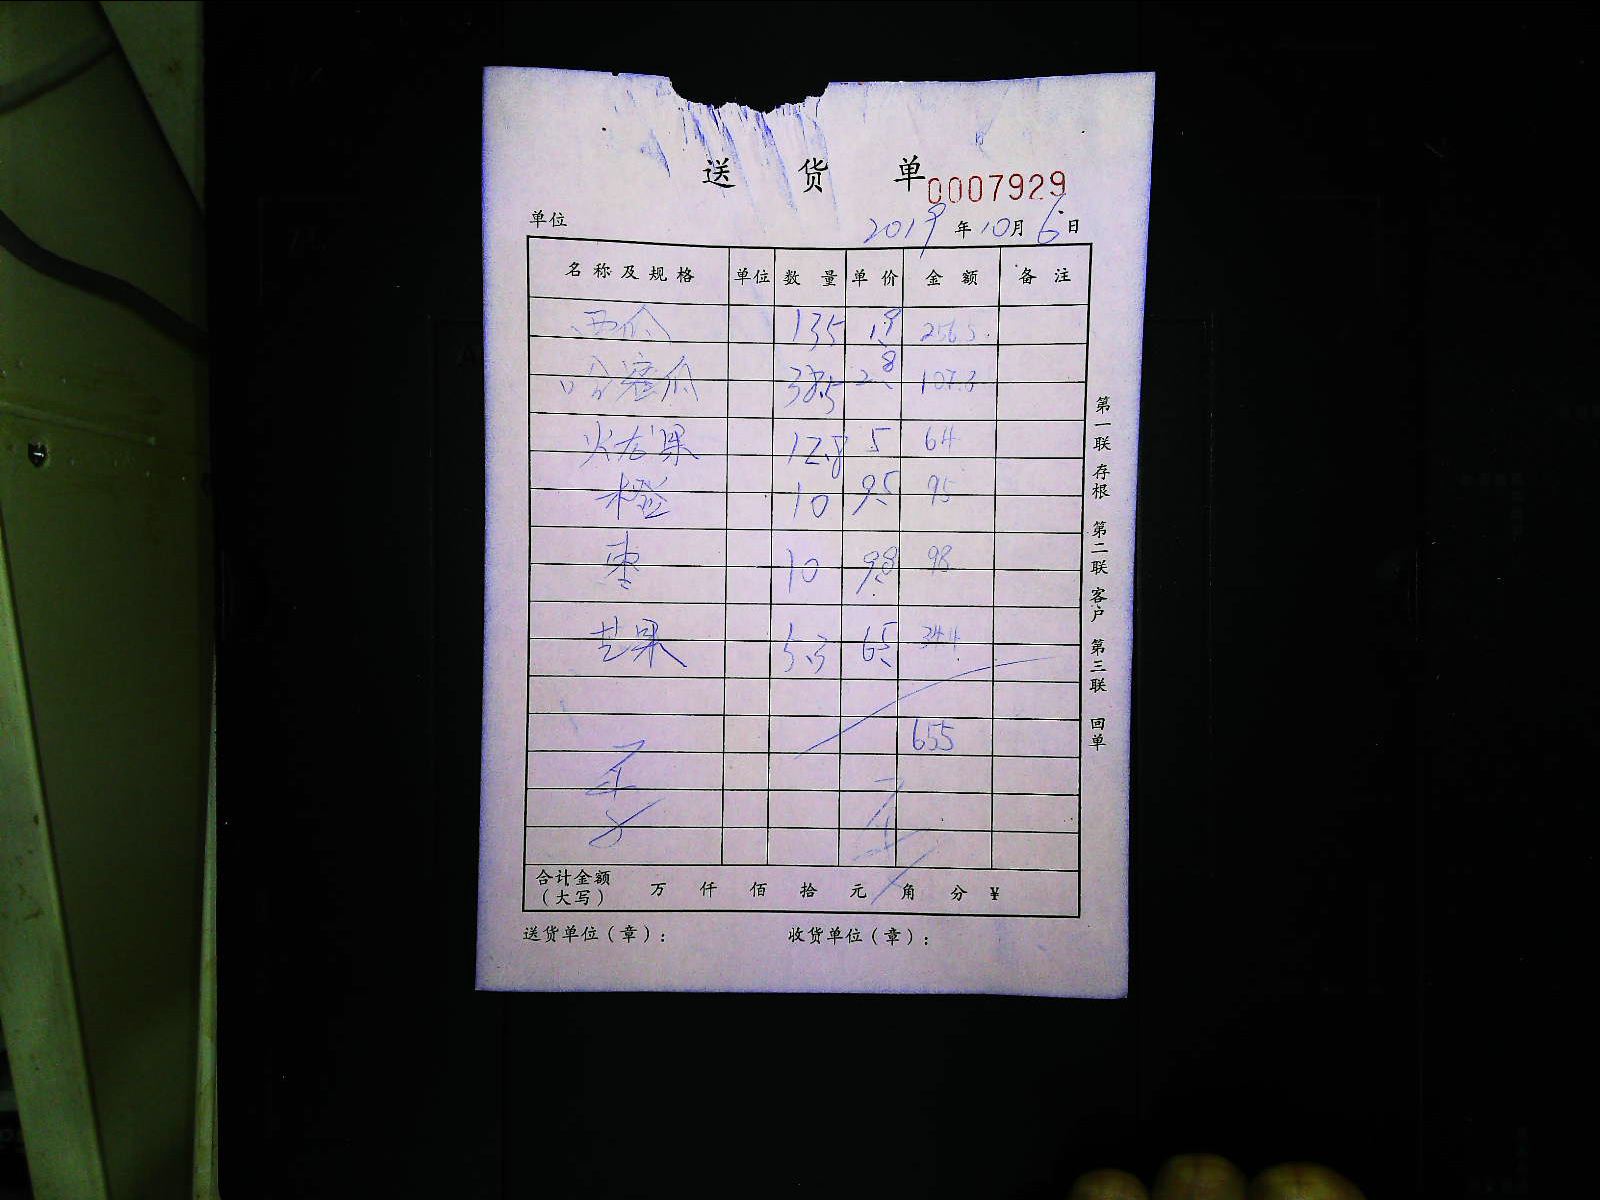 送 货 单 0007929
单位 2019 年 10 月 6 日
名称及规格 单位 数量 单价 金额 备注
西瓜 135 1.9 256.5
哈密瓜 38.5 2.8 107.3
火龙果 12.8 5 64
橙 10 9.5 95
枣 10 9.8 98
芒果 5.3 6.5 34.4
655
合计金额 万 仟 佰 拾 元 角 分 ¥
（大写）
送货单位（章）： 收货单位（章）：
第一联 存根 第二联 客户 第三联 回单